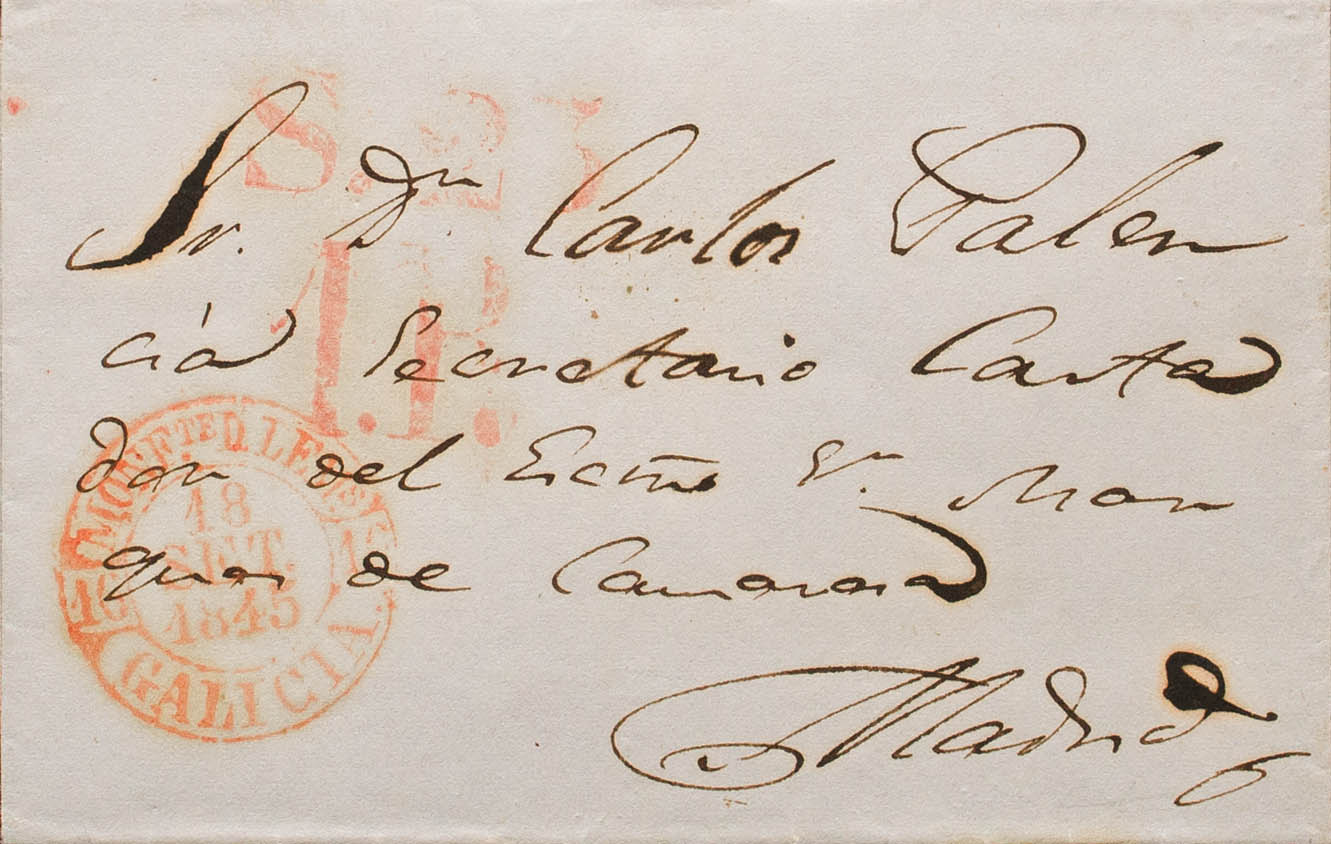 S. 2
Sr. Dn Carlos Palen
cia Secretario Conta
I.P.
dor del Excmo Sr. Mar
ques de Camarasa
Madrid
MONFTE D LEMUS
18
SET.
1845
GALICIA